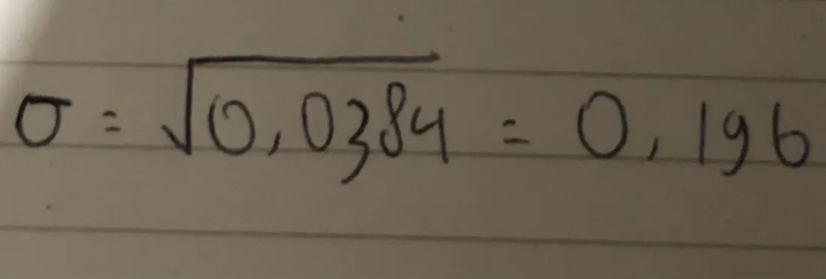 σ = √0,0384 = 0,196